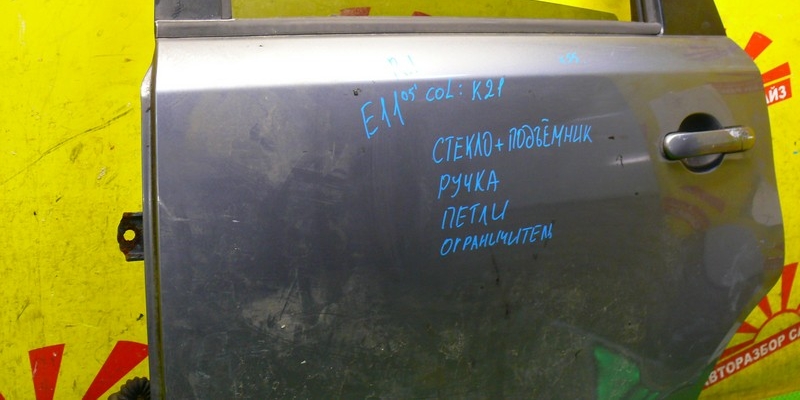 E11 05' COL: K21
СТЕКЛО+ПОДЪЁМНИК
РУЧКА
ПЕТЛИ
ОГРАНИЧИТЕЛ
АВТОРАЗБОР СА